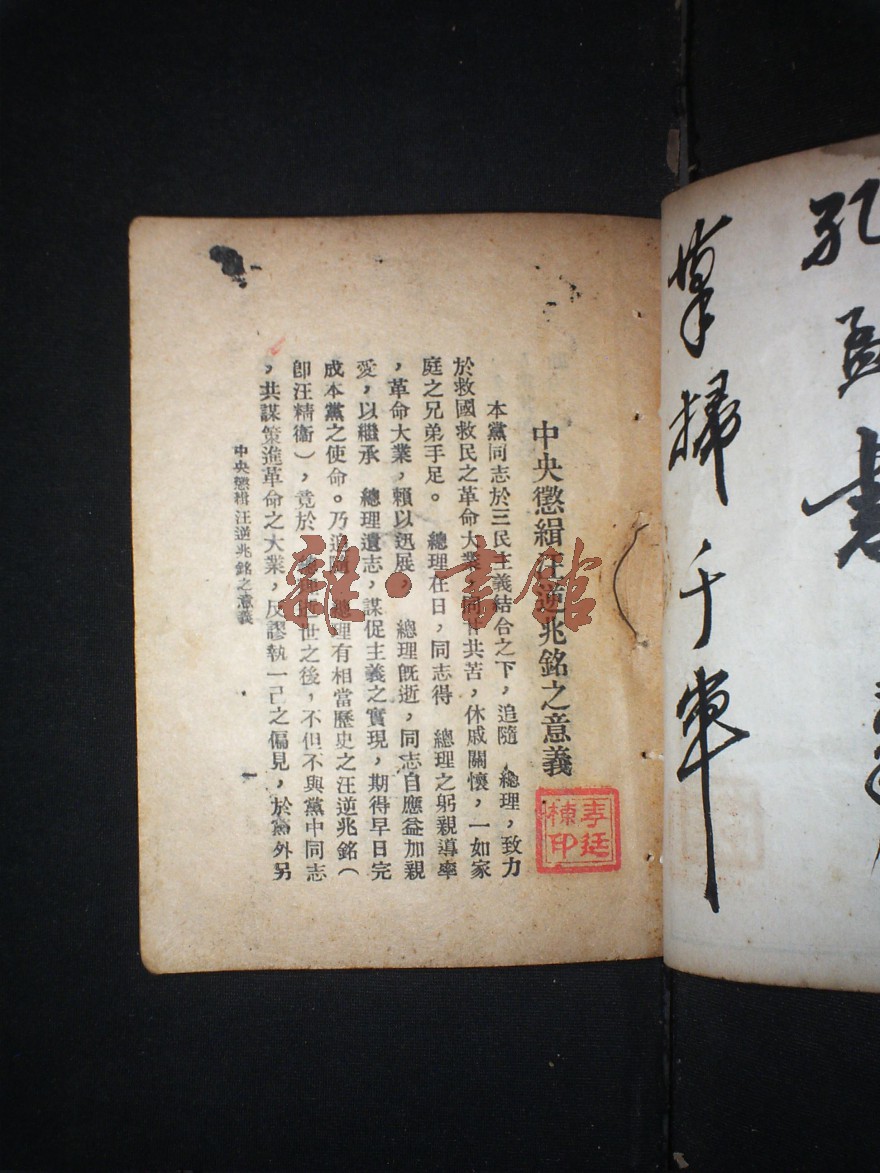 中央懲緝汪逆兆銘之意義
本黨同志於三民主義結合之下，追隨　總理，致力
於救國救民之革命大業，同甘共苦，休戚關懷，一如家
庭之兄弟手足。　總理在日，同志得　總理之躬親導率
，革命大業，賴以迅展，　總理旣逝，同志自應益加親
愛，以繼承　總理遺志，謀促主義之實現，期得早日完
成本黨之使命。乃追隨　總理有相當歷史之汪逆兆銘（
卽汪精衞），竟於　總理逝世之後，不但不與黨中同志
，共謀策進革命之大業，反謬執一己之偏見，於黨外另
中央懲緝汪逆兆銘之意義
李廷
棟印
雜·書館
孔孟書
筆掃千軍